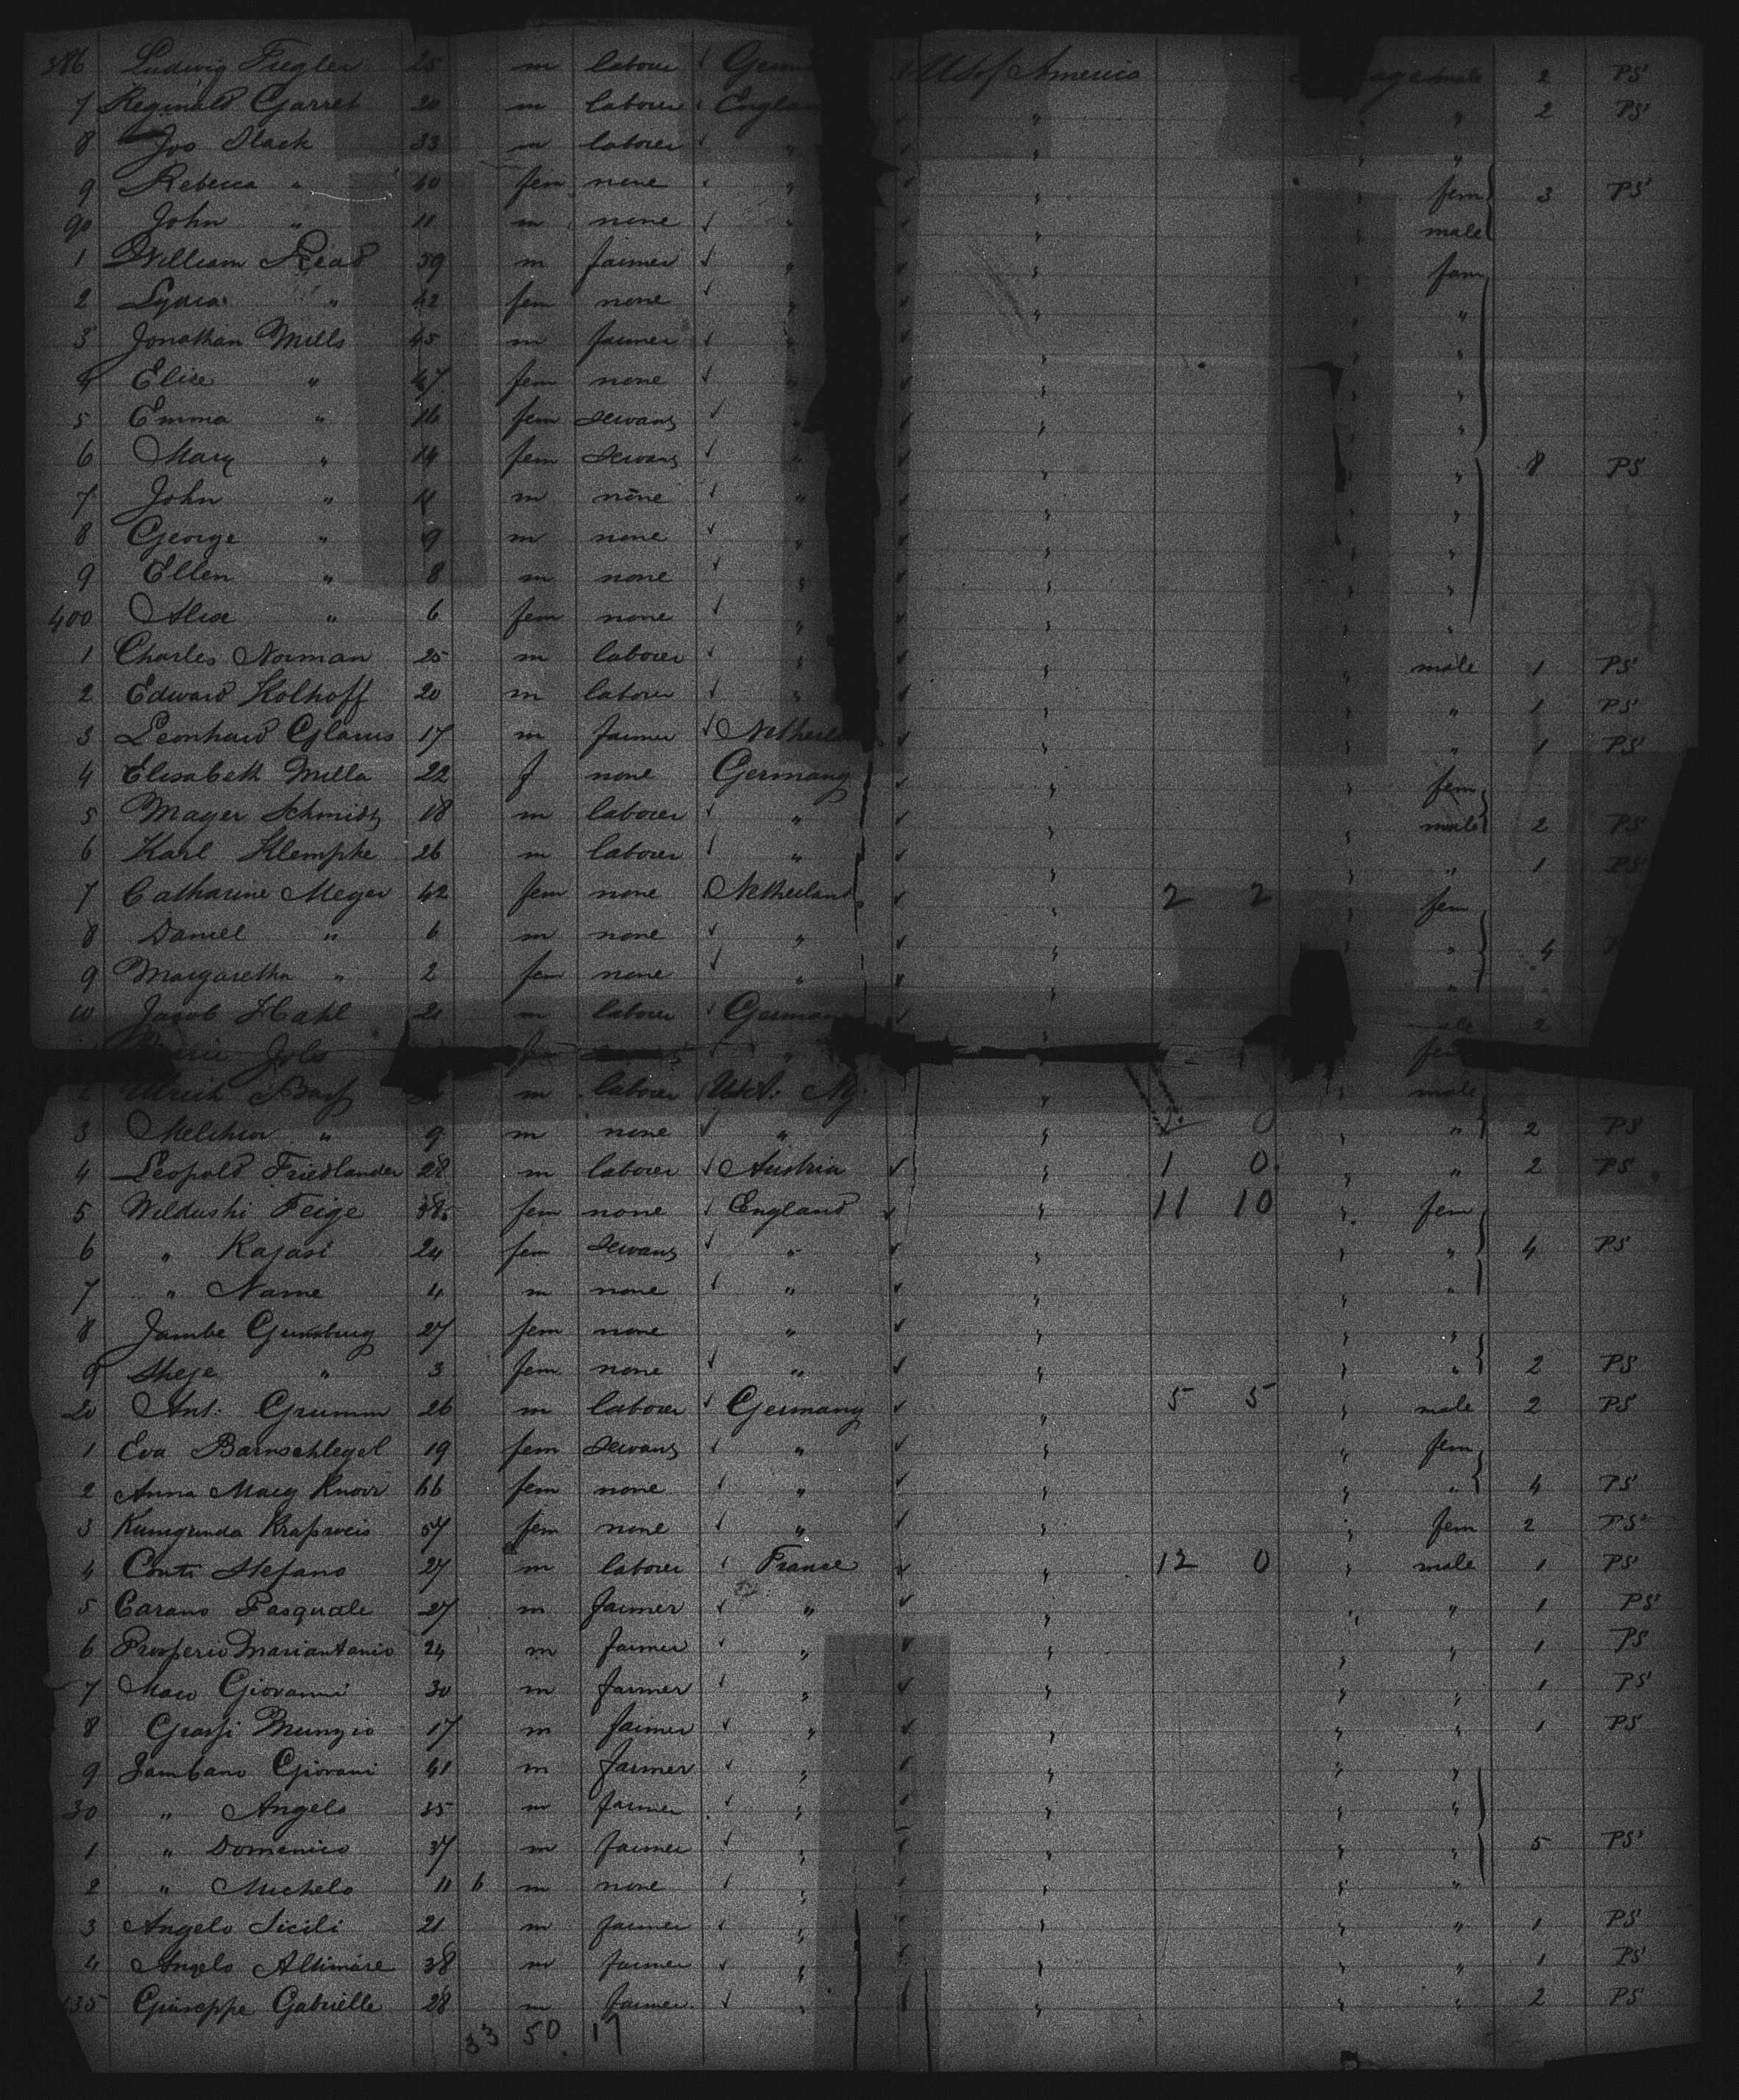 386 Ludwig Fiegler 25 m laborer ✓ U S of America male 2 PS
7 Reginald Garret 20 m laborer " " 2 PS
8 Jos Slack 33 m laborer ✓ " " "
9 Rebecca " 40 fem none " " fem 3 PS
90 John " 11 m none ✓ " " male
1 William Read 59 m farmer ✓ " " fam
2 Lydia " 42 fem none " " "
3 Jonathan Mills 45 m farmer ✓ " " "
4 Elise " 47 fem none ✓ " " "
5 Emma " 16 fem servant ✓ " " "
6 Mary " 14 fem servant ✓ " " " 8 PS
7 John " 11 m none ✓ " " "
8 George " 9 m none ✓ " " "
9 Ellen " 8 m none ✓ " " "
400 Alice " 6 fem none ✓ " " "
1 Charles Norman 25 m laborer ✓ " " male 1 PS
2 Edward Kolhoff 20 m laborer ✓ " " " 1 PS
3 Leonhard Glarus 17 m farmer ✓ " " 1 PS
4 Elisabeth Milla 22 f none Germany " fem
5 Mayer Schmidt 18 m laborer ✓ " " male 2 PS
6 Karl Klempke 26 m laborer ✓ " " " 1 PS
7 Catharine Meyer 42 fem none Netherland " 2 2 fem
8 Daniel " 6 m none ✓ " " " 4
9 Margaretha " 2 fem none ✓ " " "
10 Jacob Hahl 21 m laborer ✓ Germany 2
fem
2 Ulrich m laborer " male
3 Melchior " 9 m none ✓ " " 0 " 2 PS
4 Leopold Friedlander 28 m laborer ✓ Austria " 1 0 " 2 PS
5 Feige fem none ✓ England " 11 10 fem
6 " Kajasi 24 fem servant ✓ " " " 4 PS
7 " Name 4 m none ✓ " " "
8 Gunsburg 27 fem none " " "
9 " 3 fem none ✓ " " " 2 PS
20 Ant: Grumm 26 m laborer ✓ Germany " 5 5 male 2 PS
1 Eva Barnschlegel 19 fem servant ✓ " " fem
2 Anna Mary Knorr 66 fem none ✓ " " " 4 PS
3 Kunigunda 57 fem none ✓ " " fem 2 PS
4 Conti Stefano 27 m laborer ✓ France " 12 0 male 1 PS
5 Carano Pasquale 27 m farmer ✓ " " " 1 PS
6 Prosperio Mariantonio 24 m farmer ✓ " " " 1 PS
7 Giovanni 30 m farmer ✓ " " " 1 PS
8 Grassi Munzio 17 m farmer ✓ " " " 1 PS
9 Giovani 41 m farmer ✓ " " "
30 " Angelo 35 m farmer ✓ " " "
1 " Domenico 37 m farmer ✓ " " " 5 PS
2 " Michele 11 6 m none ✓ " " "
3 Angelo Sicili 21 m farmer ✓ " " " 1 PS
4 Angelo Altimare 38 m farmer ✓ " " " 1 PS
435 Giuseppe Gabrielle 28 m farmer ✓ " " " 2 PS
33 50 17